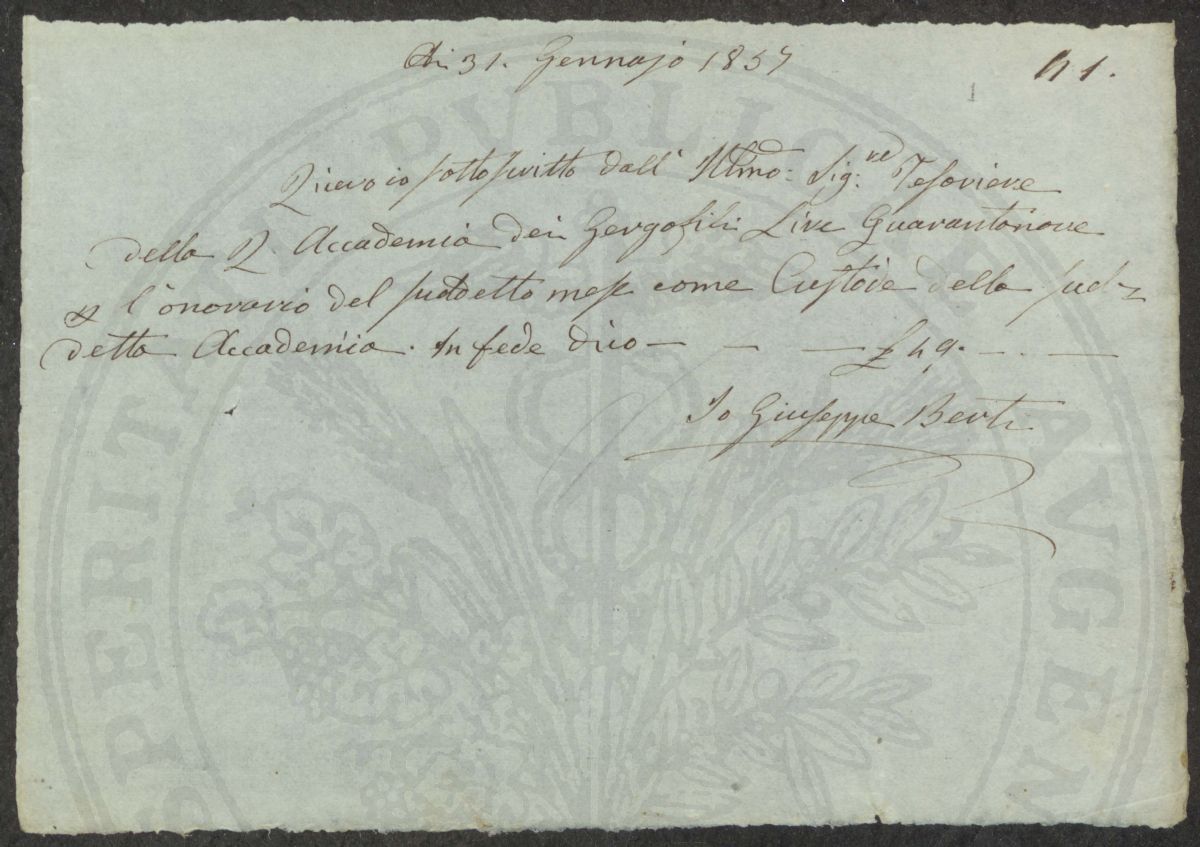 Adi 31. Gennajo 1857
41.
Ricevo io sottoscritto dall' Illmo: Sig:re Tesoriere
della R. Accademia dei Gergofili Lire Quarantanove
p l'onorario del suddetto mese come Custode della sud-
detta Accademia. In fede dico — — — £ 49. — . —
Io Giuseppe Berti
PROSPERITATI PVBLICAE AVGEN